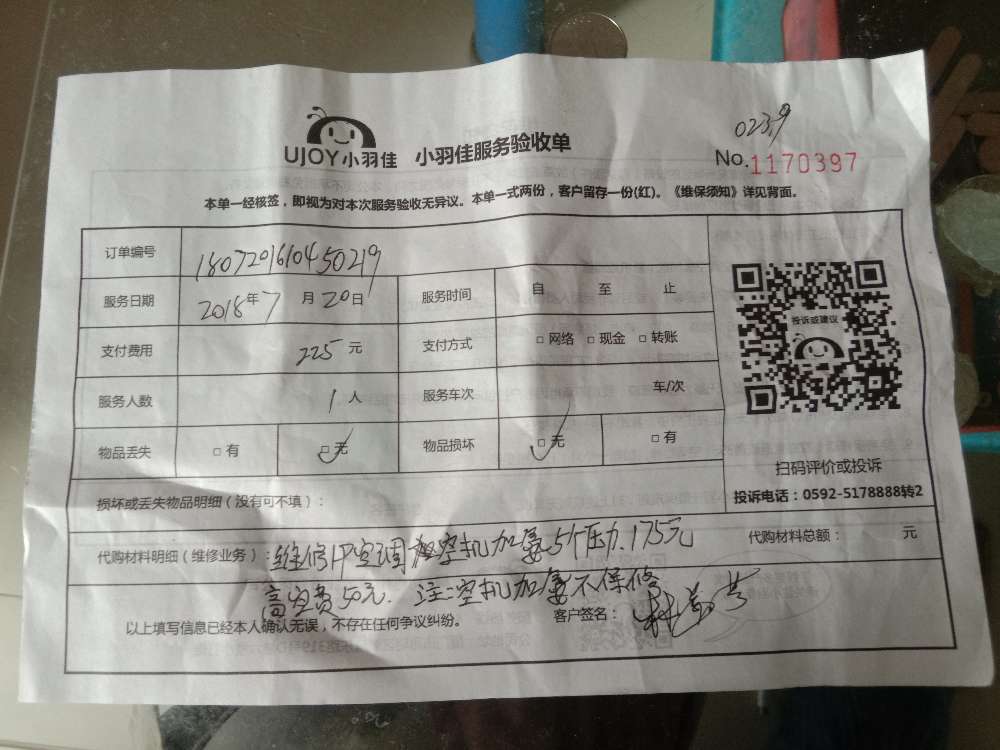 0239
UJOY小羽佳 小羽佳服务验收单 No.1170397
本单一经核签，即视为对本次服务验收无异议。本单一式两份，客户留存一份(红)。《维保须知》详见背面。
订单编号 1807201610450219
服务日期 2018年7月20日 服务时间 自 至 止
支付费用 225元 支付方式 □网络 □现金 □转账
投诉或建议
服务人数 1人 服务车次 车/次
物品丢失 □有 □无 物品损坏 □无 □有
扫码评价或投诉
损坏或丢失物品明细（没有可不填）：
投诉电话：0592-5178888转2
代购材料明细（维修业务）：维修1P空调 空机加氟 5个压力.175元
代购材料总额： 元
高空费50元. 注:空机加氟不保修
以上填写信息已经本人确认无误，不存在任何争议纠纷。
客户签名：